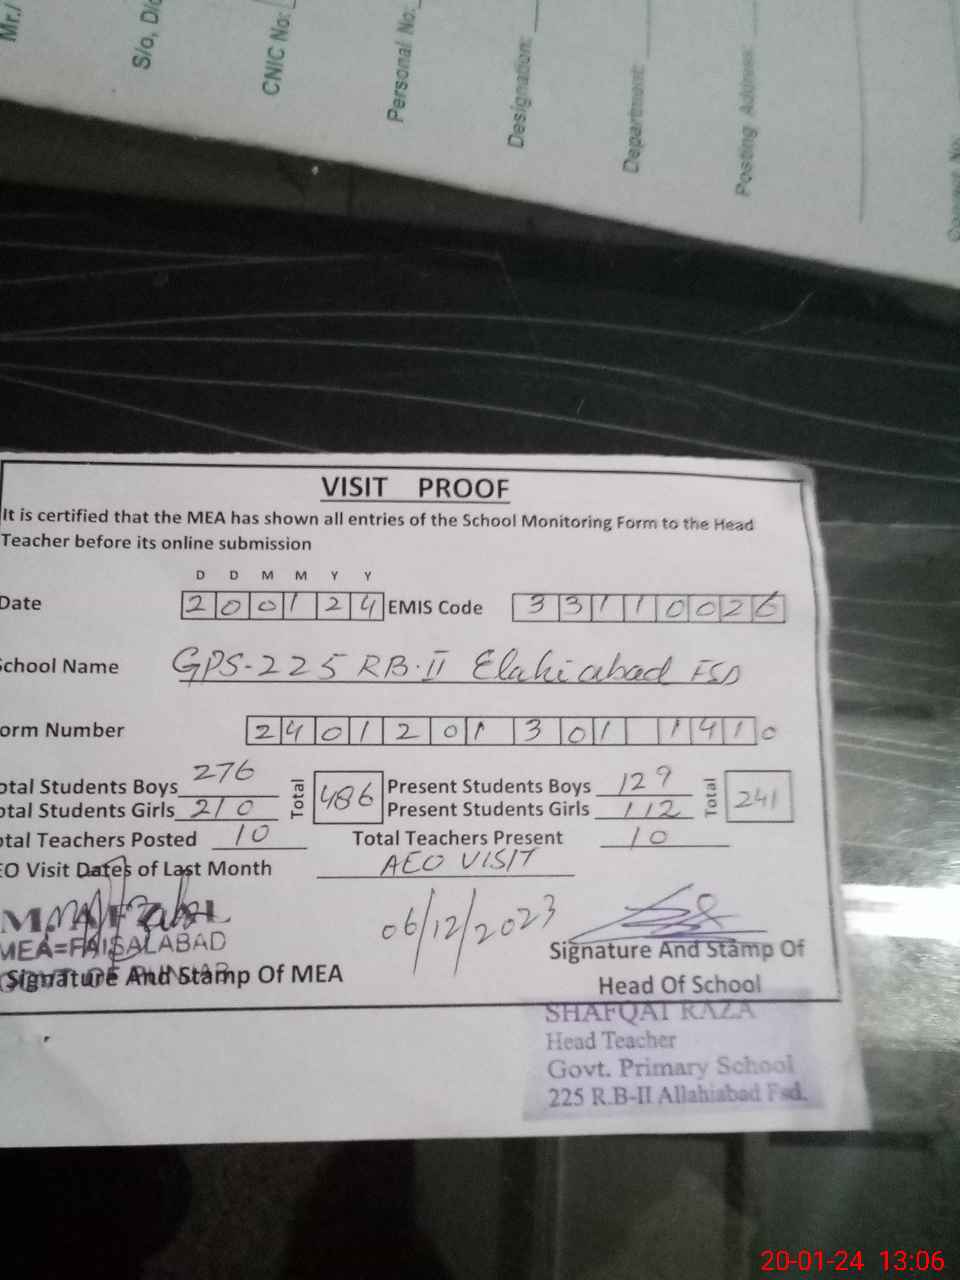 Mr./
S/o, D/o
CNIC No:
Personal No:
Designation:
Department:
Posting Address:
VISIT PROOF
It is certified that the MEA has shown all entries of the School Monitoring Form to the Head
Teacher before its online submission
D D M M Y Y
Date 2 0 0 1 2 4 EMIS Code 3 3 1 1 0 0 2 6
School Name GPS-225 RB-II Elahiabad FSD
orm Number 2 4 0 1 2 0 1 3 0 1 1 4 1 0
otal Students Boys 276 Total 486 Present Students Boys 129 Total 241
otal Students Girls 210 Present Students Girls 112
otal Teachers Posted 10 Total Teachers Present 10
EO Visit Dates of Last Month AEO VISIT
06/12/2023
MEA=FAISALABAD
Signature And Stamp Of MEA
Signature And Stamp Of
Head Of School
SHAFQAT RAZA
Head Teacher
Govt. Primary School
225 R.B-II Allahiabad Fsd.
20-01-24 13:06